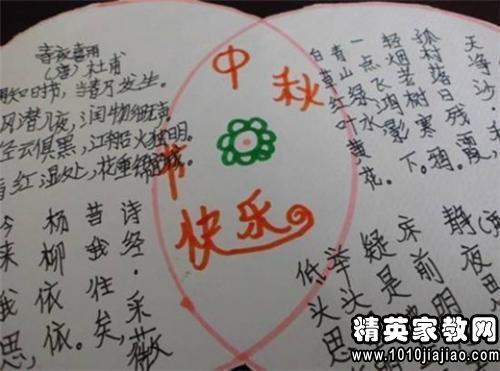 春夜喜雨
(唐)杜甫
知时节,当春乃发生。
风潜入夜,润物细无声
径云俱黑,江船火独明。
看红湿处,花重锦官城
中秋
节
快乐
天净沙
孤村落日残霞
轻烟老树寒鸦。
一点飞鸿影下。
青山绿水
白草红叶黄花。
诗经·采薇
昔我往矣,
杨柳依依。
今来我思,
静夜思
床前明
疑是
举头
低头思
精英家教网
www.1010jiajiao.com